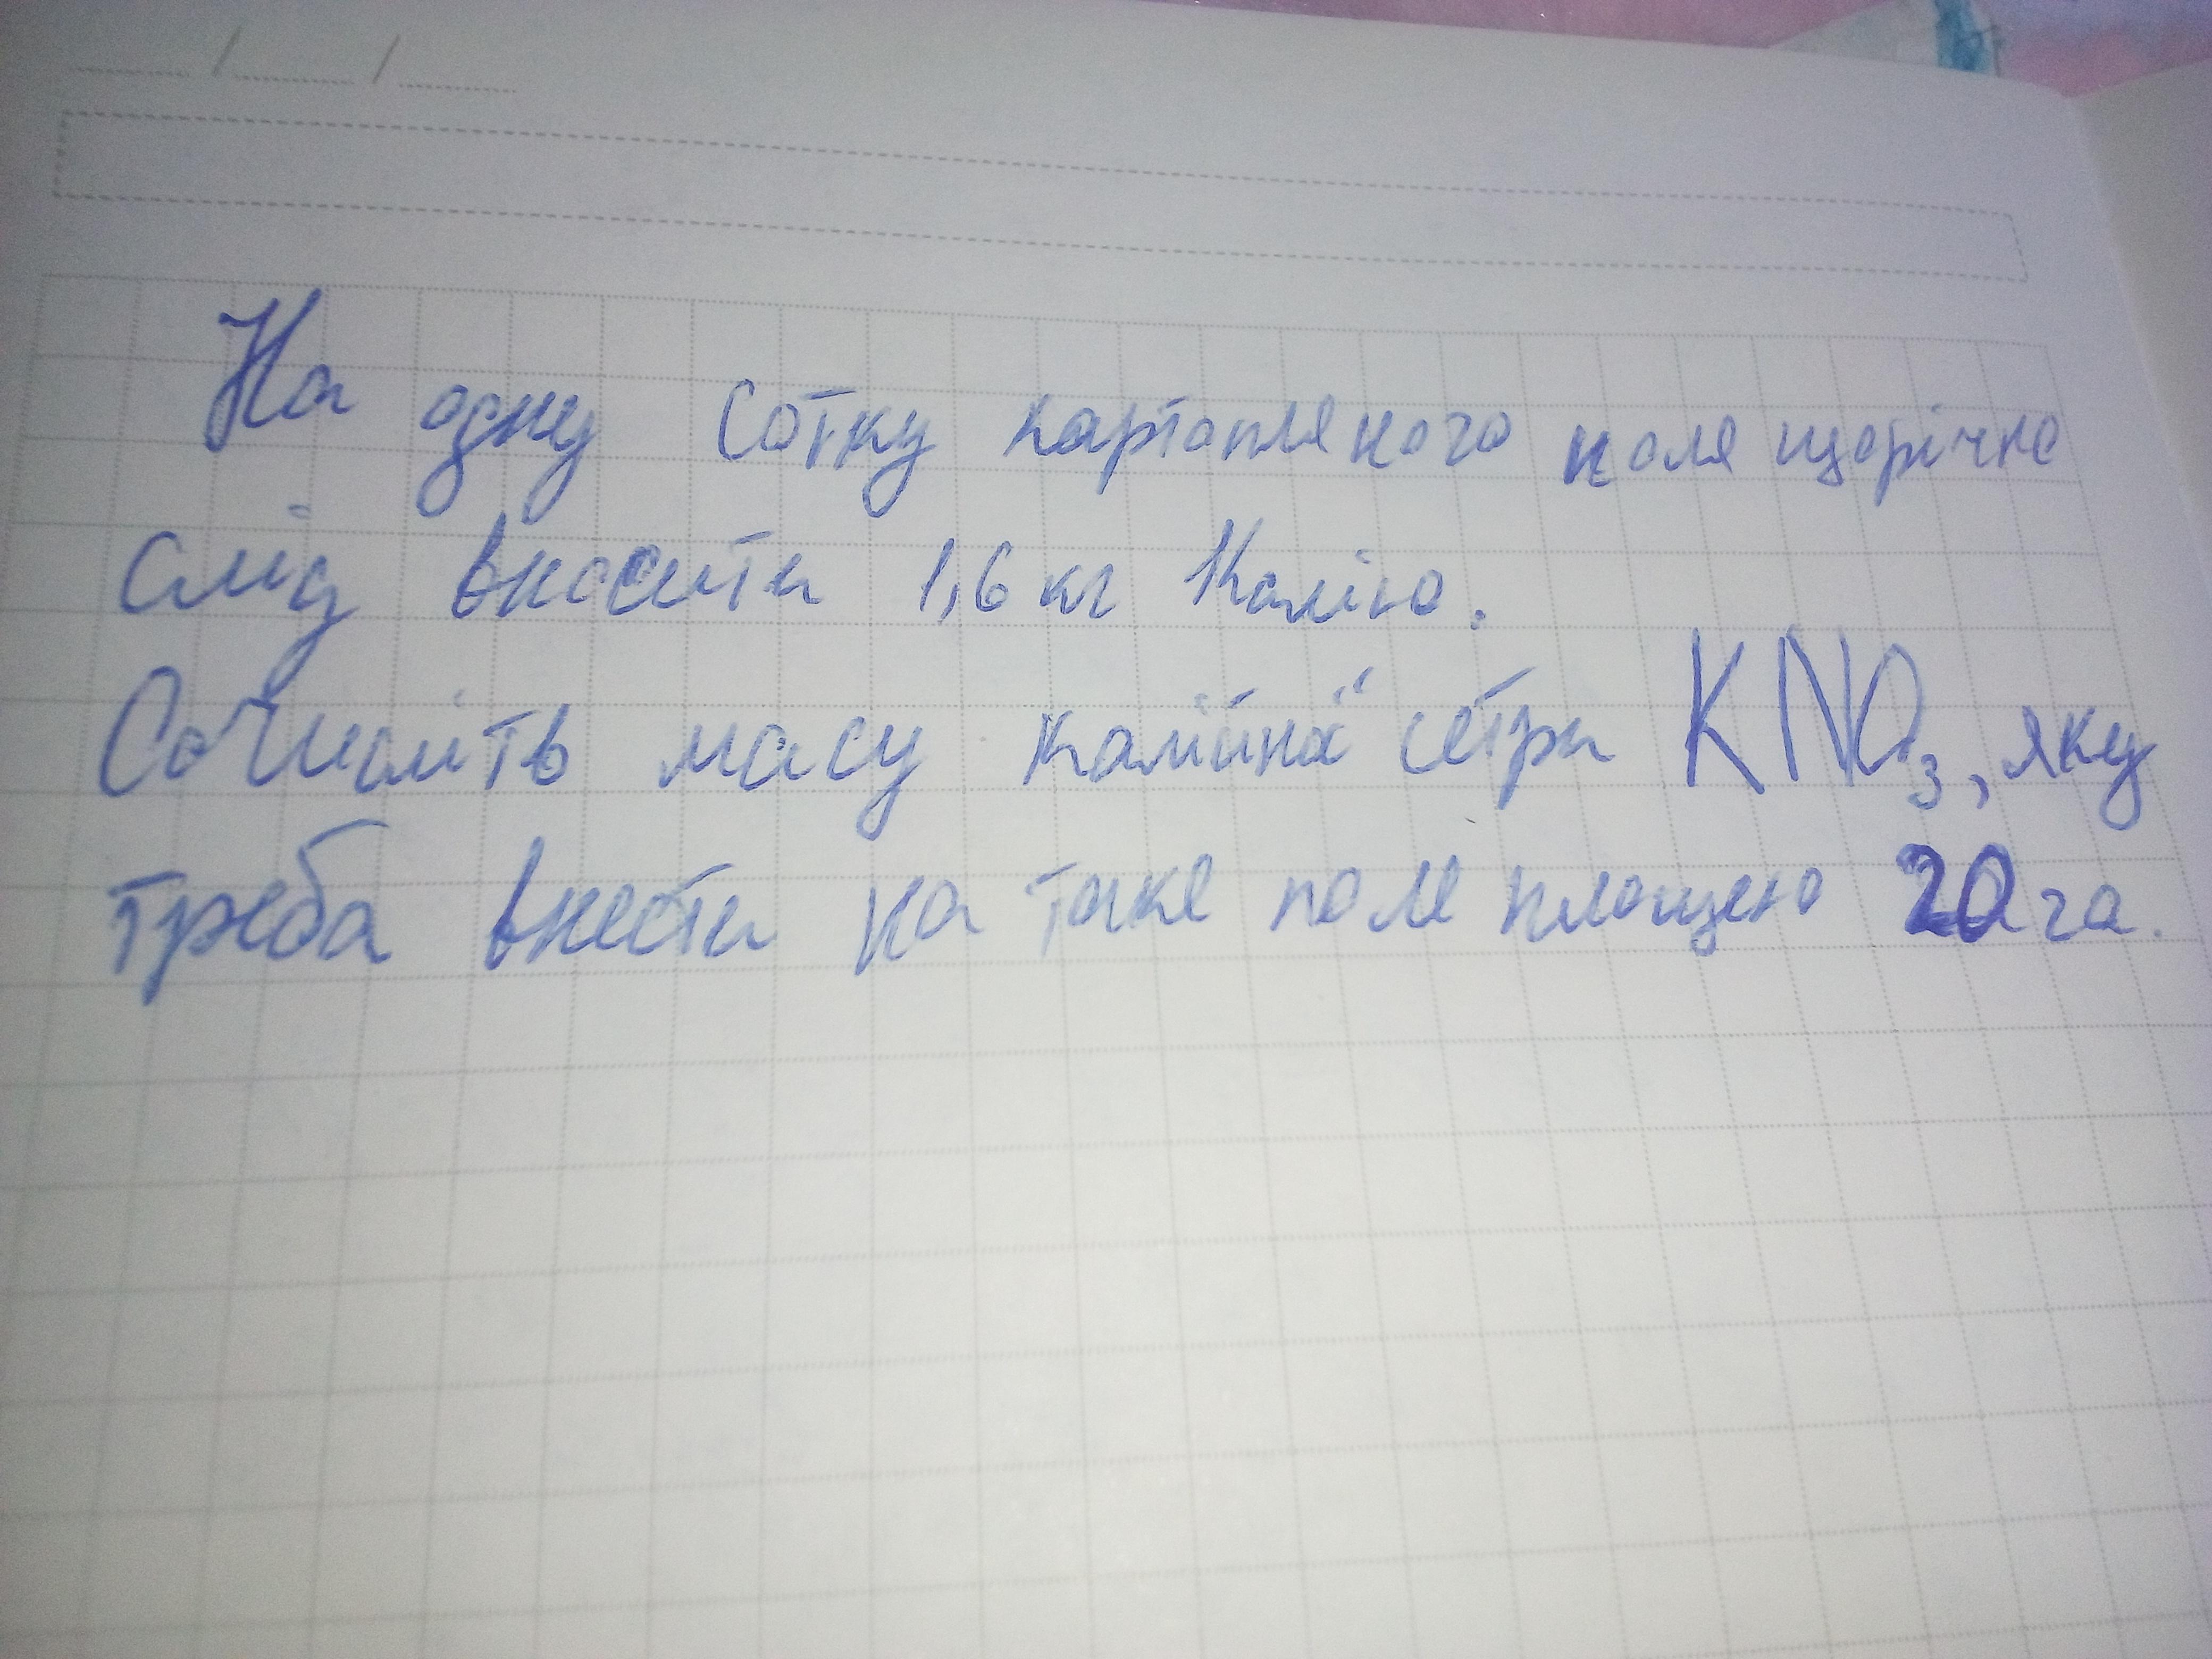 На одну сотку картопляного поля щорічно
слід вносити 1,6 кг Калію.
Обчисліть масу калійної сетри KNO₃, яку
треба внести на таке поле площею 20 га.